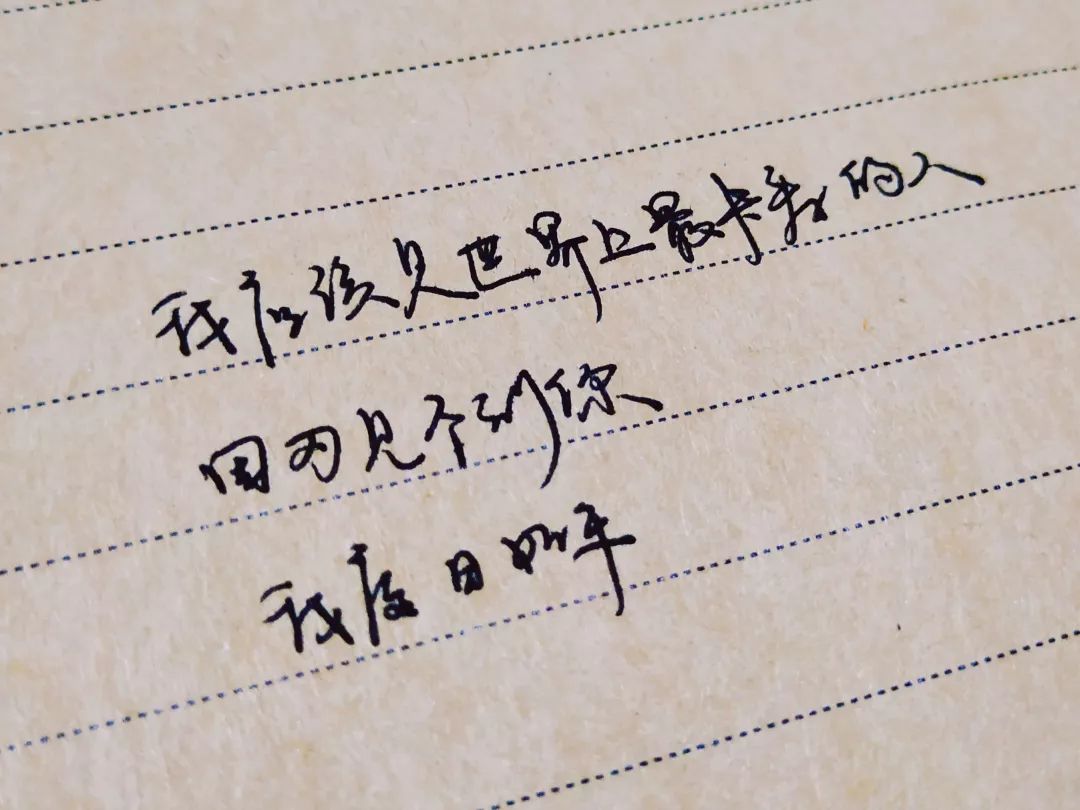 我应该是世界上最长寿的人
因为见不到你
我度日如年